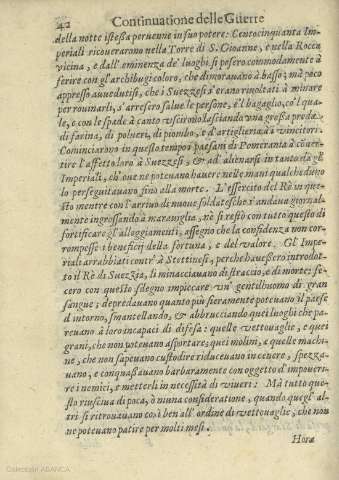 42 Continuatione delle Guerre
della notte istessa peruenne in suo potere: Centocinquanta Im-
periali ricouerarono nella Torre di S. Gioanne, e nella Rocca
vicina, e dall'eminenza de' luoghi si posero commodamente à
ferire con gl'archibugi coloro, che dimorauano à basso; mà poco
appresso auuedutisi, che i Suezzesi s'erano riuoltati à mirare
per rouinarli, s'arresero salue le persone, è'l bagaglio, co'l qua-
le, e con le spade à canto vscirono lasciando vna grossa preda
di farina, di polueri, di piombo, e d'artiglieria à vincitori.
Cominciarono in questo tempo i paesani di Pomerania à cõuer-
tire l'affetto loro à Suezzesi, & ad' alienarsi in tanto da gl'
Imperiali, ch'oue ne poteuano hauere nelle mani qualcheduno
lo perseguitauano sino alla morte. L'essercito del Rè in que-
sto mentre con l'arriuo di nuoue soldatesche s'andaua giornal-
mente ingrossando à marauiglia, nè si restò con tutto questo di
fortificare gl'alloggiamenti, assegno che la confidenza non cor-
rompesse i beneficij della fortuna, e del valore. Gl' Impe-
riali arrabbiati contr' à Stettinesi, perche hauessero introdot-
to il Rè di Suezzia, li minacciauano di straccio, e di morte: fe-
cero con questo sdegno impiccare vn' gentilhuomo di gran
sangue; depredauano quanto più fieramente poteuano il paese
d'intorno, smantellando, & abbrucciando quei luoghi che pa-
reuano à loro incapaci di difesa: quelle vettouaglie, e quei
grani, che non poteuano asportare; quei molini, e quelle machi-
ne, che non sapeuano custodire riduceuano in cenere, spezza-
uano, e conquassauano barbaramente con oggetto d'impoueri-
re i nemici, e metterli in necessità di viueri: Mà tutto que-
sto riusciua di poca, ò niuna consideratione, quando quegl' al-
tri si ritrouauano così ben all' ordine di vettouaglie, che non
ne poteuano patire per molti mesi.
Hora
Colección ABANCA